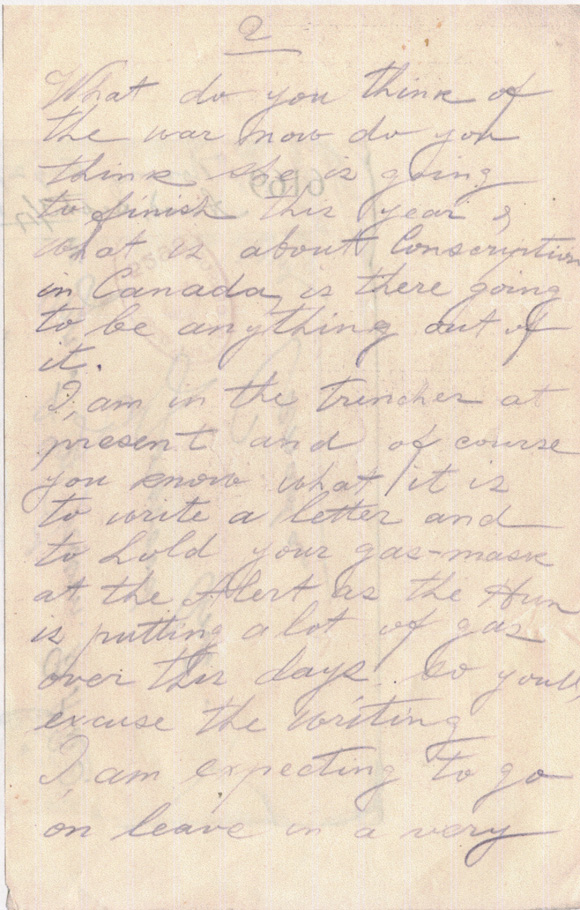 2
What do you think of
the war now do you
think she is going
to finish this year &
what is about Conscription
in Canada, is there going
to be anything out of
it.
I, am in the trenches at
present and of course
you know what it is
to write a letter and
to hold your gas-mask
at the Alert as the Hun
is putting alot of gas
over this days. so youll
excuse the writing
I, am expecting to go
on leave in a very